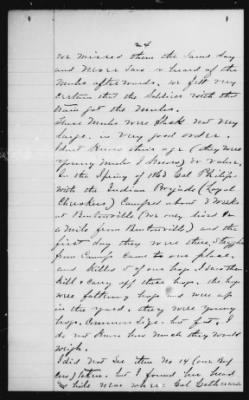 24
We missed them the same day
and never saw or heard of the
mules afterwards, we felt very
certain that the soldiers with the
train got the mules.
These mules were Black not very
large, in very good order. I
dont know their age (they were
young mules I know) or value.
In the Spring of 1863 Col Philips
with the Indian Brigade (Loyal
Cherokees) Camped about 2 weeks
at Bentonville (We only lived
a mile from Bentonville) and the
first day they were there,
from Camp came to our place,
and killed 5 of our hogs I saw them
kill & carry off these hogs, the hogs
were fattening hogs and were up
in the yard, they were young
hogs, Common size but fat, I
do not know how much they would
weigh.
I did not see item No 14 (one Bay
) taken, but I found her head
& hide near where Col